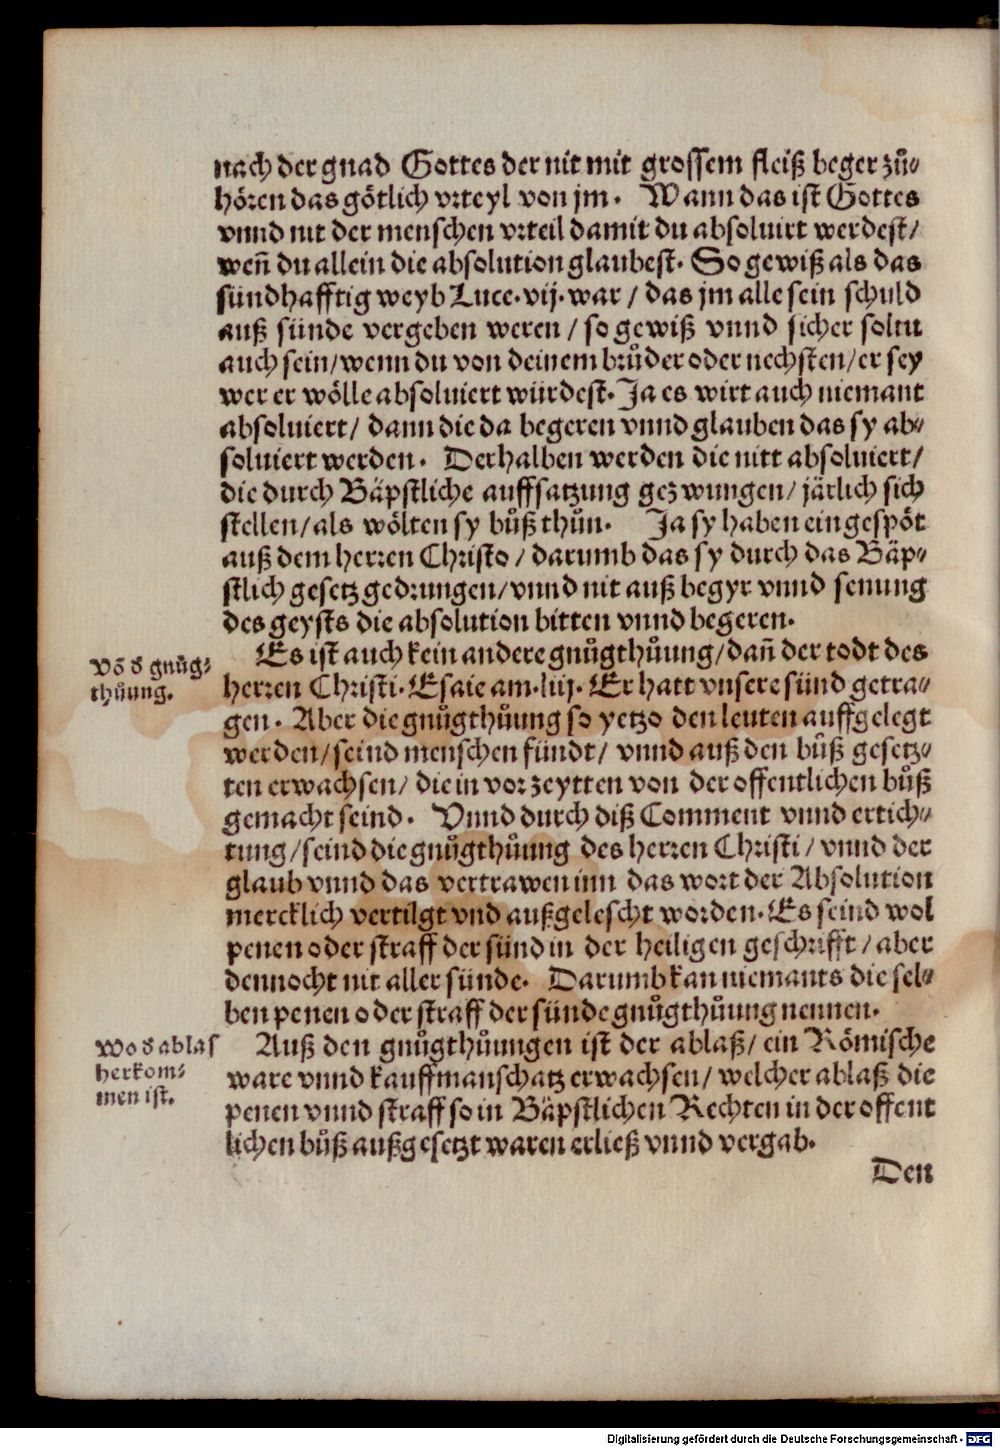 nach der gnad Gottes der nit mit grossem fleiß beger zů⸗
hören das götlich vrteyl von jm. Wann das ist Gottes
vnnd nit der menschen vrteil damit du absoluirt werdest/
weñ du allein die absolution glaubest. So gewiß als das
sündhafftig weyb Luce.vij.war/ das jm alle sein schuld
auß sünde vergeben weren/ so gewiß vnnd sicher soltu
auch sein/wenn du von deinem brůder oder nechsten/er sey
wer er wölle absoluiert würdest. Ja es wirt auch niemant
absoluiert/ dann die da begeren vnnd glauben das sy ab⸗
soluiert werden. Derhalben werden die nitt absoluiert/
die durch Bäpstliche auffsatzung gezwungen/ järlich sich
stellen/als wölten sy bůß thůn. Ja sy haben ein gespöt
auß dem herren Christo/ darumb das sy durch das Bäp⸗
stlich gesetz gedrungen/vnnd nit auß begyr vnnd senung
des geysts die absolution bitten vnnd begeren.
Võ d gnůg⸗
thůung.
Es ist auch kein andere gnůgthůung/dañ der todt des
herren Christi. Esaie am.liij. Er hatt vnsere sünd getra⸗
gen. Aber die gnůgthůung so yetzo den leuten auffgelegt
werden/seind menschen fündt/ vnnd auß den bůß gesetz⸗
ten erwachsen/ die in vorzeytten von der offentlichen bůß
gemacht seind. Vnnd durch diß Comment vnnd ertich⸗
tung/seind die gnůgthůung des herren Christi/ vnnd der
glaub vnnd das vertrawen inn das wort der Absolution
mercklich vertilgt vnd außgelescht worden. Es seind wol
penen oder straff der sünd in der heiligen geschrifft/ aber
dennocht nit aller sünde. Darumb kan niemants die sel⸗
ben penen oder straff der sünde gnůgthůung nennen.
Wo d ablas
herkom⸗
men ist.
Auß den gnůgthůungen ist der ablaß/ ein Römische
ware vnnd kauffmanschatz erwachsen/ welcher ablaß die
penen vnnd straff so in Bäpstlichen Rechten in der offent
lichen bůß außgesetzt waren erließ vnnd vergab.
Den
Digitalisierung gefördert durch die Deutsche Forschungsgemeinschaft - DFG